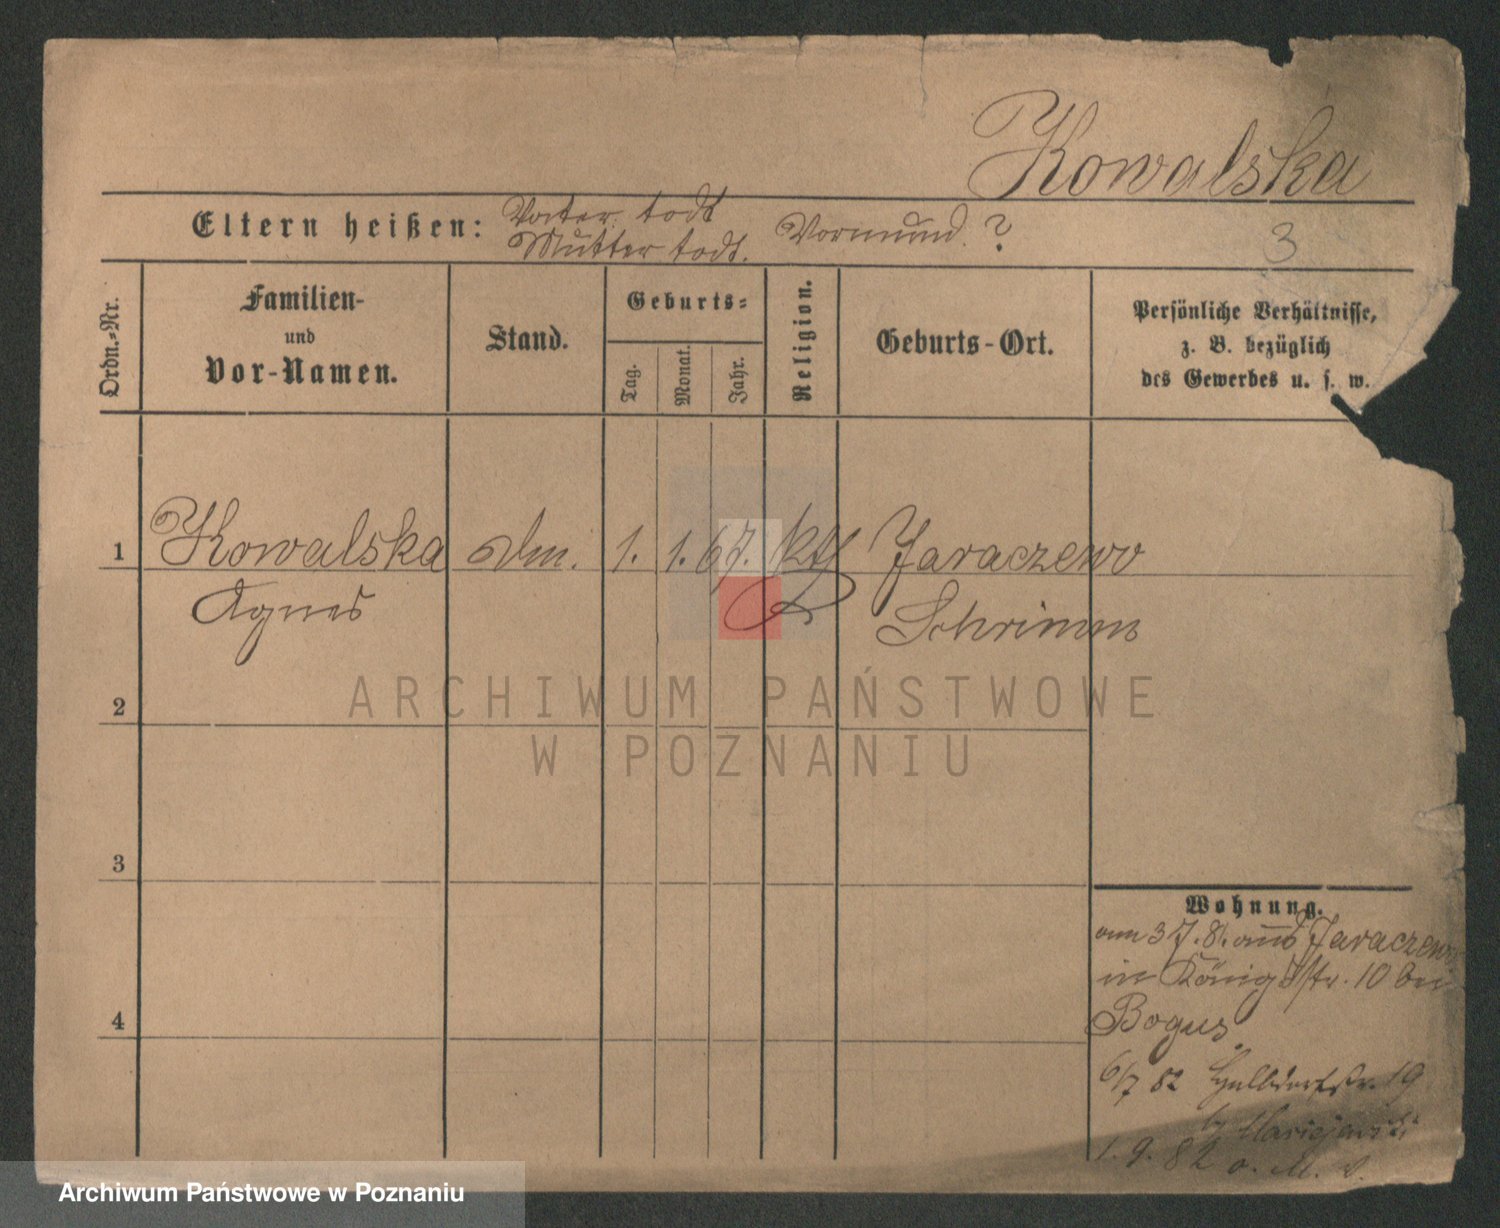 Kowalska
Eltern heißen: Vater todt Vormund ?
Mutter todt.
3
Ordn.-Nr.
Familien-
und
Vor-Namen.
Stand.
Geburts-
Tag.
Monat.
Jahr.
Religion.
Geburts-Ort.
Persönliche Verhältnisse,
z. B. bezüglich
des Gewerbes u. s. w.
1 Kowalska 1. 1. 67. kth Jaraczewo
Agnes Schrimm
2
3
4
Wohnung.
am 3 7. 81. aus Jaraczewo
in Königsstr. 10 bei
Bogus
6/7 82 19
1. 9. 82
ARCHIWUM PAŃSTWOWE
W POZNANIU
Archiwum Państwowe w Poznaniu